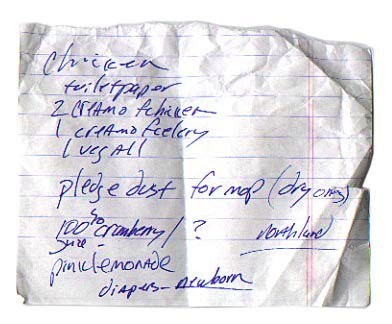 chicken
toiletpaper
2 creamofchicken
1 creamofcelery
1 vegAll
pledge dust for mop (dry ones)
100% cranberry / ?
Juice - Northland
pink lemonade
diapers - newborn